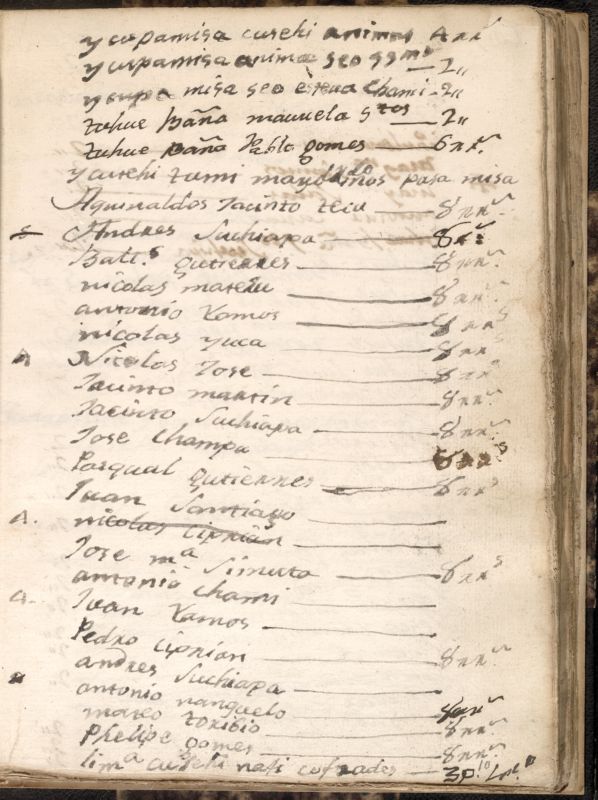 y cupamisa cusehi animas 4 rrs
y cuspamisa anima seo — 2„
y cupa misa seo chami - 2„
tuhue paña manuela stos — 2„
tuhue paña Pablo gomes — 6 rrs.
y cusehi tumi mayordomos pasa misa
Aguinaldos Jacinto teca — 8 rrs.
Andres Suchiapa — 8 rs
Balt.s gutierres — 8 rrs.
nicolas mateu — 8 rrs.
antonio Ramos — 8 rrs
nicolas yuca — 8 rrs
A Nicolas Jose — 8 rrs
Jacinto martin — 8 rrs.
Jacinto Suchiapa — 8 rrs.
Jose Champa — 8 rrs
Pasqual gutierres — 8 rrs
Juan Santiago —
A. nicolas Ciprian —
Jose m.a Simuta — 8 rrs
antonio Chami —
A. Juan Ramos —
Pedro Ciprian — 8 rrs.
andres Suchiapa —
antonio nanguelo — 8 rrs
mateo toribio — 8 rrs.
Phelipe gomes — 8 rrs.
lima cusehi nasi cofrades — 3 p.s